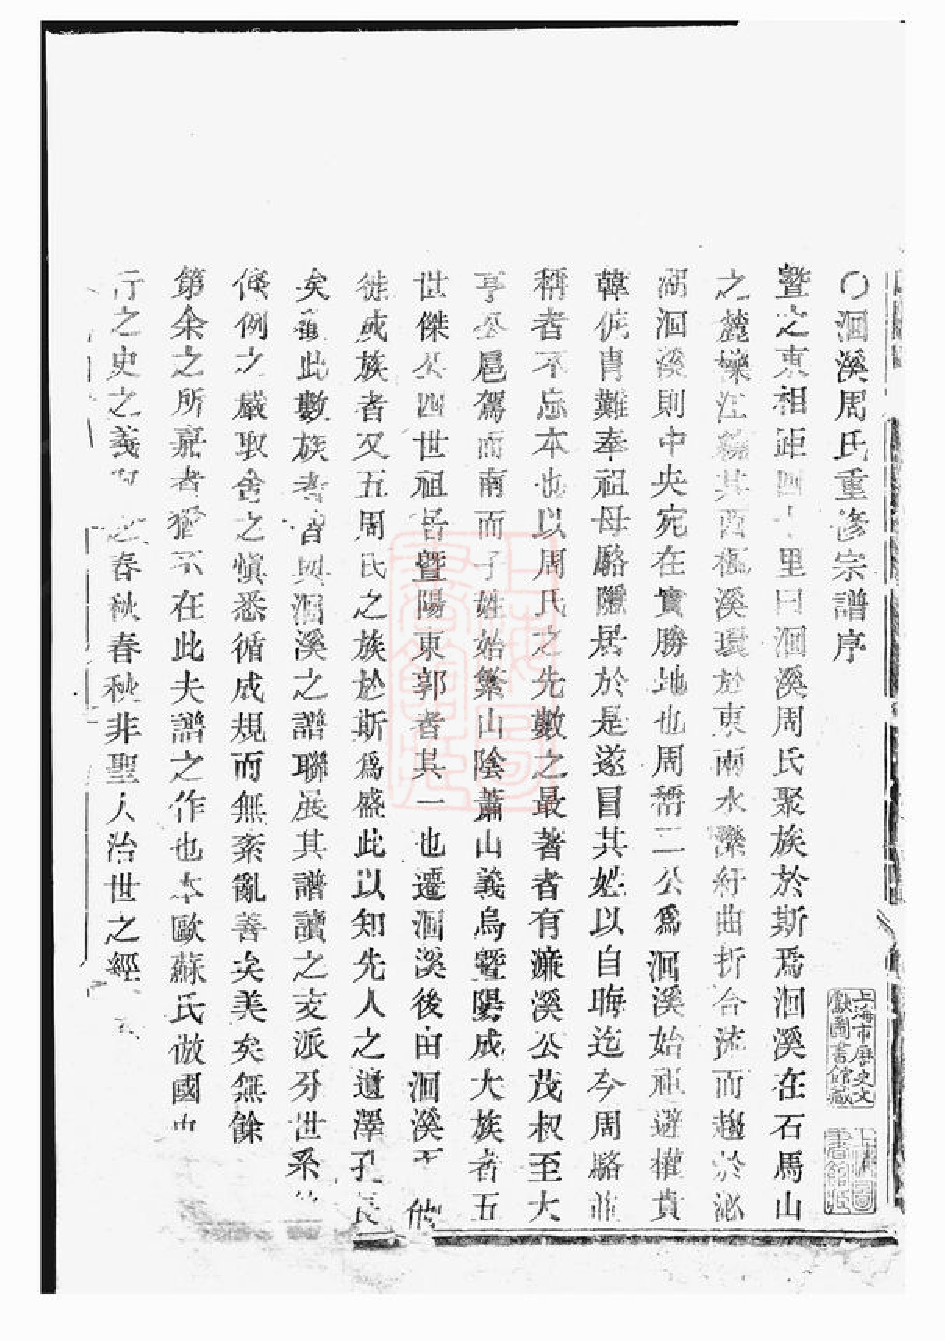 〇洄溪周氏重修宗譜序
暨之東相距四十里曰洄溪周氏聚族於斯焉洄溪在石馬山
之麓櫟江繞其西楓溪環於東兩水瀠紆曲折合流而趨於泌
湖洄溪則中央宛在實勝地也周稱二公爲洄溪始祖避權貴
韓侂胄難奉祖母駱隱居於是遂冒其姓以自晦迄今周駱並
稱者不忘本也以周氏之先數之最著者有濂溪公茂叔至大
亨公扈駕而南而子姓始繁山陰蕭山義烏暨陽成大族者五
世傑公四世祖居暨陽東郭者其一也遷洄溪後由洄溪而他
徙成族者又五周氏之族於斯爲盛此以知先人之遺澤孔長
矣顧此數族者皆與洄溪之譜聯展其譜讀之支派分世系
條例之嚴取舍之愼悉循成規而無紊亂善矣美矣無餘
第余之所嘉者猶不在此夫譜之作也本歐蘇氏倣國史
行之史之義 之春秋春秋非聖人治世之經
上海市歷史文獻圖書館藏